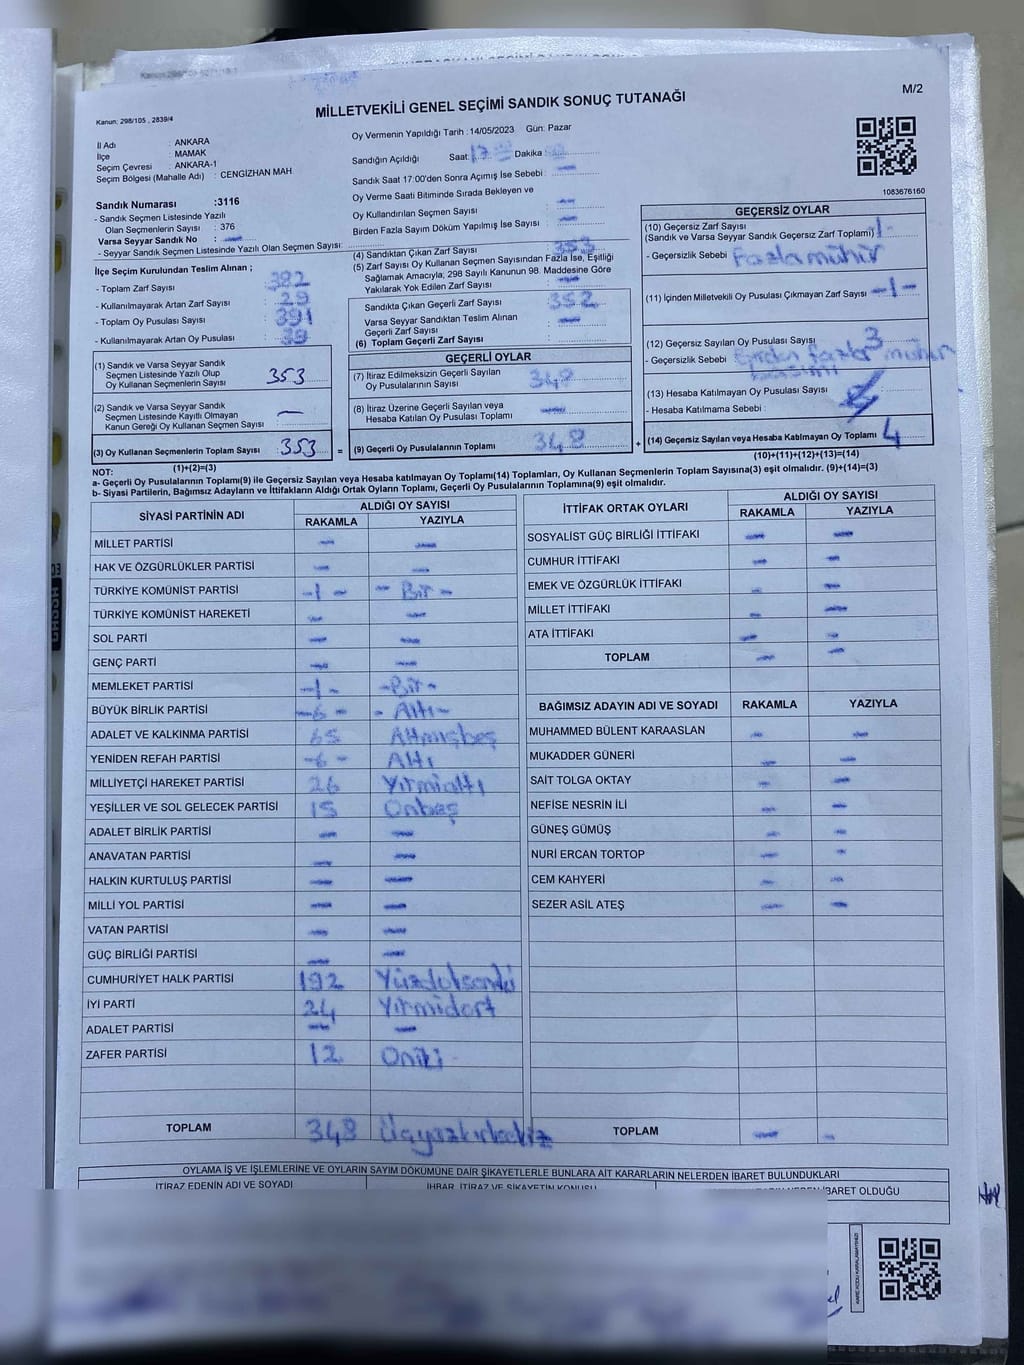 MİLLETVEKİLİ GENEL SEÇİMİ SANDIK SONUÇ TUTANAĞI
M/2
Kanun: 298/105 , 2839/4
İl Adı : ANKARA
İlçe : MAMAK
Seçim Çevresi : ANKARA-1
Seçim Bölgesi (Mahalle Adı) : CENGİZHAN MAH.
Oy Vermenin Yapıldığı Tarih : 14/05/2023 Gün: Pazar
Sandığın Açıldığı Saat: 17 Dakika :
Sandık Saat 17:00'den Sonra Açımış İse Sebebi : —
Oy Verme Saati Bitiminde Sırada Bekleyen ve
Oy Kullandırılan Seçmen Sayısı : —
Birden Fazla Sayım Döküm Yapılmış İse Sayısı : —
1083676160
Sandık Numarası :3116
- Sandık Seçmen Listesinde Yazılı
Olan Seçmenlerin Sayısı : 376
Varsa Seyyar Sandık No : —
- Seyyar Sandık Seçmen Listesinde Yazılı Olan Seçmen Sayısı:
İlçe Seçim Kurulundan Teslim Alınan ;
- Toplam Zarf Sayısı : 382
- Kullanılmayarak Artan Zarf Sayısı : 29
- Toplam Oy Pusulası Sayısı : 391
- Kullanılmayarak Artan Oy Pusulası : 39
(1) Sandık ve Varsa Seyyar Sandık
Seçmen Listesinde Yazılı Olup
Oy Kullanan Seçmenlerin Sayısı : 353
(2) Sandık ve Varsa Seyyar Sandık
Seçmen Listesinde Kayıtlı Olmayan
Kanun Gereği Oy Kullanan Seçmen Sayısı : —
(3) Oy Kullanan Seçmenlerin Toplam Sayısı : 353
(1)+(2)=(3)
(4) Sandıktan Çıkan Zarf Sayısı : 353
(5) Zarf Sayısı Oy Kullanan Seçmen Sayısından Fazla İse, Eşitliği
Sağlamak Amacıyla; 298 Sayılı Kanunun 98. Maddesine Göre
Yakılarak Yok Edilen Zarf Sayısı : —
Sandıkta Çıkan Geçerli Zarf Sayısı : 352
Varsa Seyyar Sandıktan Teslim Alınan
Geçerli Zarf Sayısı : —
(6) Toplam Geçerli Zarf Sayısı :
GEÇERLİ OYLAR
(7) İtiraz Edilmeksizin Geçerli Sayılan
Oy Pusulalarının Sayısı : 348
(8) İtiraz Üzerine Geçerli Sayılan veya
Hesaba Katılan Oy Pusulası Toplamı : —
= (9) Geçerli Oy Pusulalarının Toplamı : 348 +
GEÇERSİZ OYLAR
(10) Geçersiz Zarf Sayısı
(Sandık ve Varsa Seyyar Sandık Geçersiz Zarf Toplamı) : 1-
- Geçersizlik Sebebi : Fazla mühür
(11) İçinden Milletvekili Oy Pusulası Çıkmayan Zarf Sayısı : -1-
(12) Geçersiz Sayılan Oy Pusulası Sayısı : 3
- Geçersizlik Sebebi : fazla mühür
basımı
(13) Hesaba Katılmayan Oy Pusulası Sayısı :
- Hesaba Katılmama Sebebi :
(14) Geçersiz Sayılan veya Hesaba Katılmayan Oy Toplamı : 4
(10)+(11)+(12)+(13)=(14)
NOT:
a- Geçerli Oy Pusulalarının Toplamı(9) ile Geçersiz Sayılan veya Hesaba katılmayan Oy Toplamı(14) Toplamları, Oy Kullanan Seçmenlerin Toplam Sayısına(3) eşit olmalıdır. (9)+(14)=(3)
b- Siyasi Partilerin, Bağımsız Adayların ve İttifakların Aldığı Ortak Oyların Toplamı, Geçerli Oy Pusulalarının Toplamına(9) eşit olmalıdır.
SİYASİ PARTİNİN ADI ALDIĞI OY SAYISI
RAKAMLA YAZIYLA
MİLLET PARTİSİ — —
HAK VE ÖZGÜRLÜKLER PARTİSİ — —
TÜRKİYE KOMÜNİST PARTİSİ -1- - Bir -
TÜRKİYE KOMÜNİST HAREKETİ — —
SOL PARTİ — —
GENÇ PARTİ — —
MEMLEKET PARTİSİ -1- -Bir-
BÜYÜK BİRLİK PARTİSİ -6- - Altı-
ADALET VE KALKINMA PARTİSİ 65 Altmışbeş
YENİDEN REFAH PARTİSİ -6- Altı
MİLLİYETÇİ HAREKET PARTİSİ 26 Yirmialtı
YEŞİLLER VE SOL GELECEK PARTİSİ 15 Onbeş
ADALET BİRLİK PARTİSİ — —
ANAVATAN PARTİSİ — —
HALKIN KURTULUŞ PARTİSİ — —
MİLLİ YOL PARTİSİ — —
VATAN PARTİSİ — —
GÜÇ BİRLİĞİ PARTİSİ — —
CUMHURİYET HALK PARTİSİ 192 Yüzdoksaniki
İYİ PARTİ 24 Yirmidört
ADALET PARTİSİ — —
ZAFER PARTİSİ 12 Oniki
TOPLAM 348 Üçyüzkırksekiz
İTTİFAK ORTAK OYLARI ALDIĞI OY SAYISI
RAKAMLA YAZIYLA
SOSYALİST GÜÇ BİRLİĞİ İTTİFAKI — —
CUMHUR İTTİFAKI — —
EMEK VE ÖZGÜRLÜK İTTİFAKI — —
MİLLET İTTİFAKI — —
ATA İTTİFAKI — —
TOPLAM — —
BAĞIMSIZ ADAYIN ADI VE SOYADI RAKAMLA YAZIYLA
MUHAMMED BÜLENT KARAASLAN — —
MUKADDER GÜNERİ — —
SAİT TOLGA OKTAY — —
NEFİSE NESRİN İLİ — —
GÜNEŞ GÜMÜŞ — —
NURİ ERCAN TORTOP — —
CEM KAHYERİ — —
SEZER ASİL ATEŞ — —
TOPLAM — —
OYLAMA İŞ VE İŞLEMLERİNE VE OYLARIN SAYIM DÖKÜMÜNE DAİR ŞİKAYETLERLE BUNLARA AİT KARARLARIN NELERDEN İBARET BULUNDUKLARI
İTİRAZ EDENİN ADI VE SOYADI İHBAR, İTİRAZ VE ŞİKAYETİN KONUSU İBARET OLDUĞU
KARE KODU KARALAMAYINIZ!